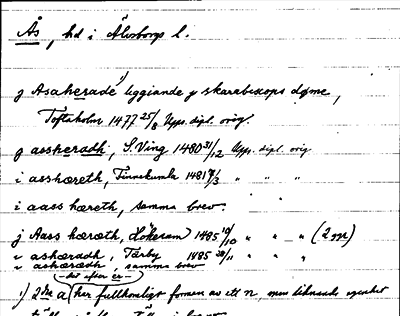 Ås, hd i Älvsborgs l.
j Asaherade liggiande y skarabescops døme,
Toftaholm 1477 25/8 Upps. dipl. orig.
g assheradh, S. Ving 1480 31/12 Upps. dipl. orig
i asshæreth, Finnekumla 1481 9/3 " " "
i aass hæreth, samma brev.
j Aass hæræth, Hökerum 1485 10/10 " " " (2 gr)
i ashæradh, Tärby 1485 28/11 " " "
i ashæradh, samma brev
- det efter är -
1) 2dra a (har fullkomligt formen av ett n, men liknande